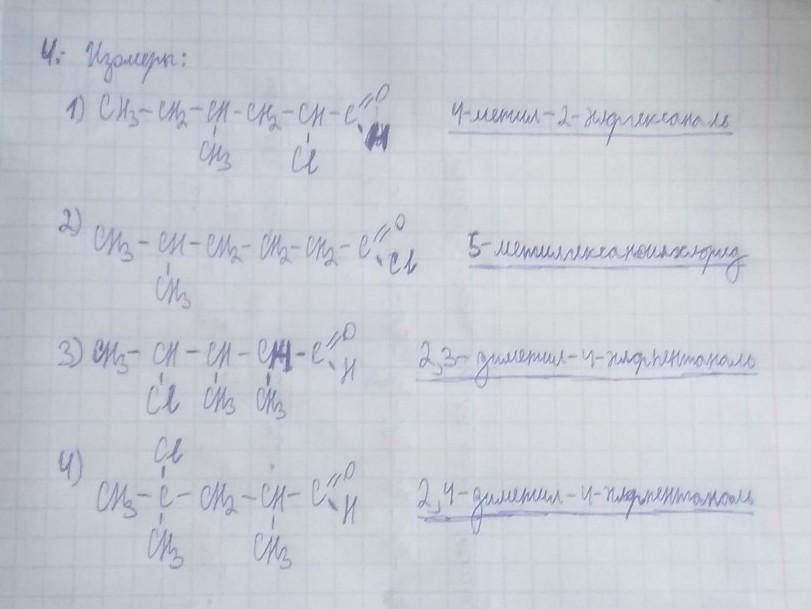 4. Изомеры:
1) CH3-CH2-CH-CH2-CH-C=O H 4-метил-2-хлоргексаналь
CH3 Cl
2) CH3-CH-CH2-CH2-CH2-C=O Cl 5-метилгексаноилхлорид
CH3
3) CH3-CH-CH-CH-C=O H 2,3-диметил-4-хлорпентаналь
Cl CH3 CH3
Cl
4) CH3-C-CH2-CH-C=O H 2,4-диметил-4-хлорпентаналь
CH3 CH3